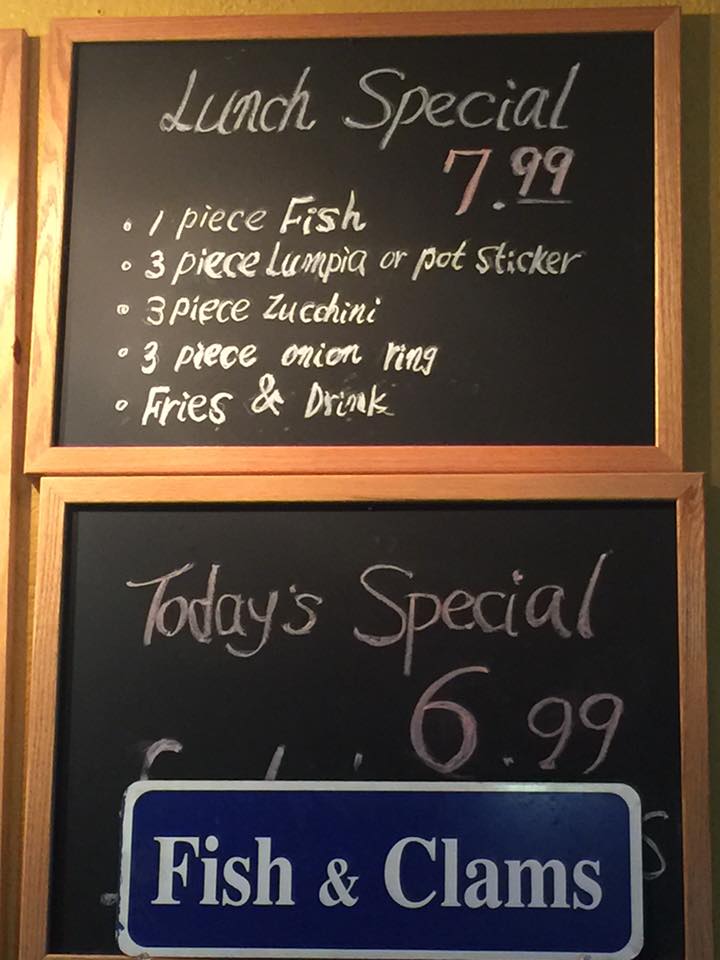 Lunch Special
7.99
• 1 piece Fish
• 3 piece Lumpia or pot sticker
• 3 piece Zucchini
• 3 piece onion ring
• Fries & Drink
Today's Special
6.99
Fish & Clams